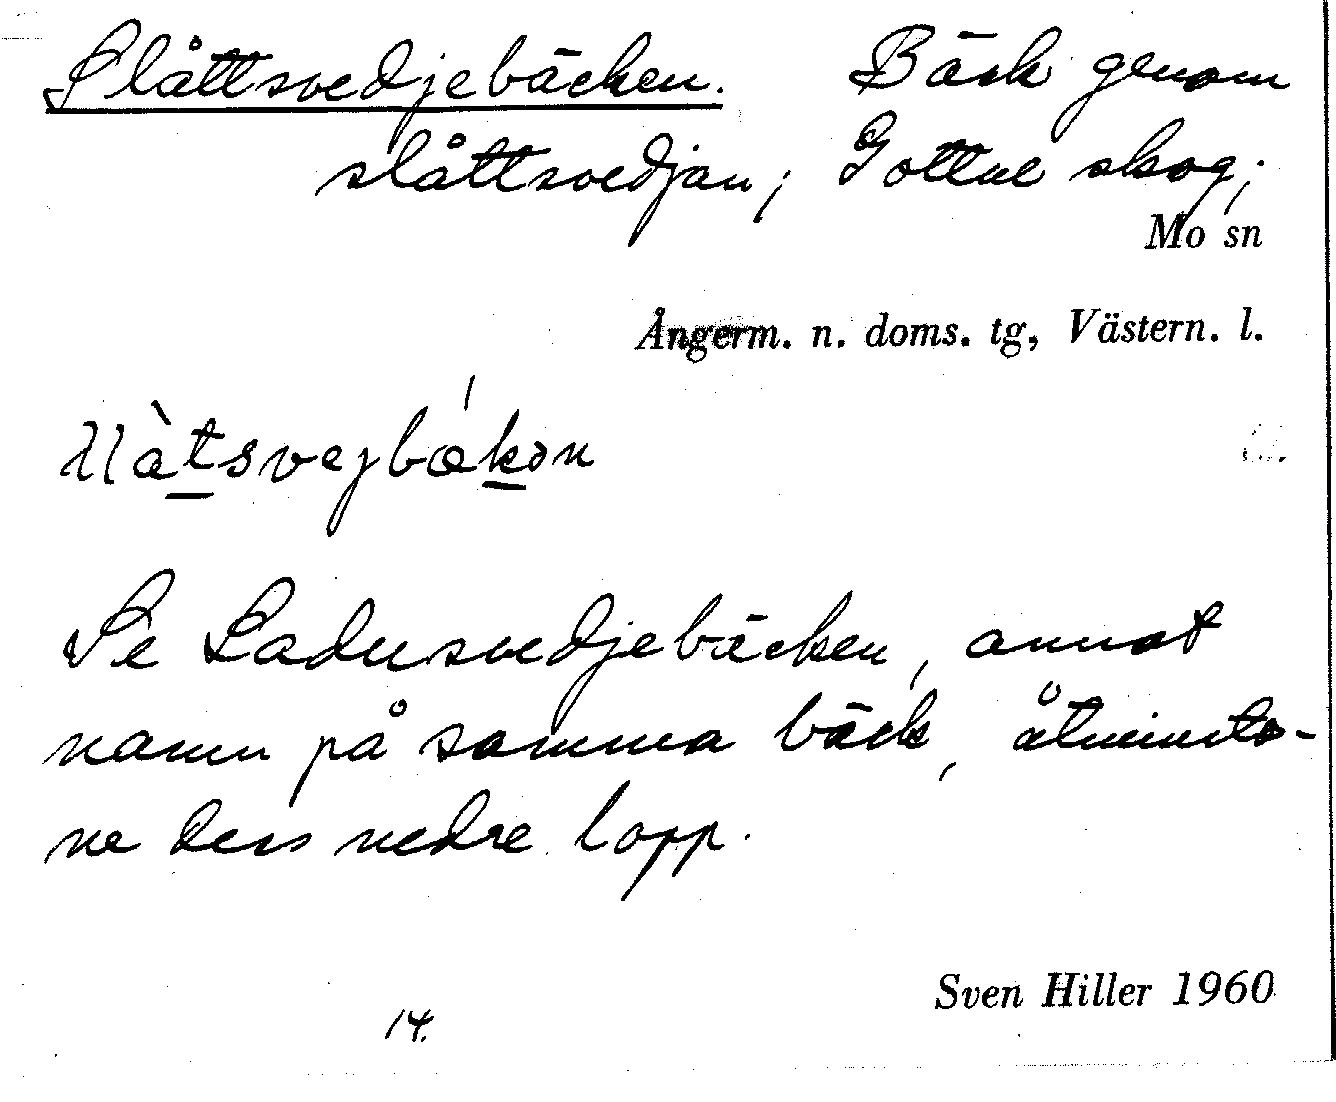 Slåttsvedjebäcken. Bäck genom
slåttsvedjan; Gottne skog;
Mo sn
Ångerm. n. doms. tg, Västern. l.
Se Ladusvedjebäcken, annat
namn på samma bäck, åtminsto-
ne dess nedre lopp.
Sven Hiller 1960
14.